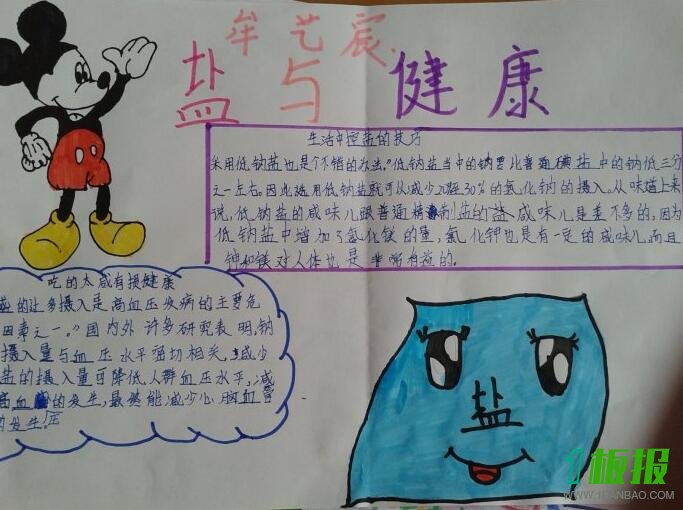 牟艺宸
盐与健康
生活中控盐的技巧
采用低钠盐也是个不错的办法。“低钠盐当中的钠要比普通碘盐中的钠低三分
之一左右。因此选用低钠盐就可以减少30%的氯化钠的摄入。从味道上来
说,低钠盐的咸味儿跟普通精制盐的盐咸味儿是差不多的,因为
低钠盐中增加了氯化镁的量,氯化钾也是有一定的咸味儿,而且
钾和镁对人体也是非常有益的。
吃的太咸有损健康
盐的过多摄入是高血压疾病的主要危
因素之一。”国内外许多研究表明,钠
摄入量与血压水平密切相关,减少
盐的摄入量可降低人群血压水平,减
高血的发生,最终能减少心脑血管
的发生。
盐
板报
WWW.1BANBAO.COM